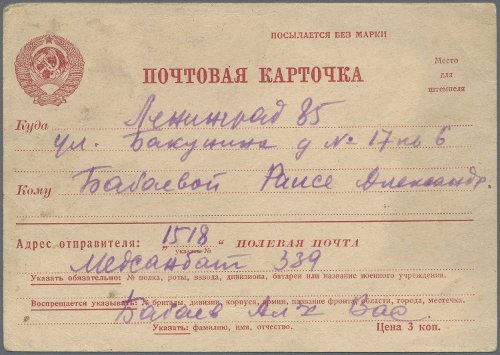 ПОСЫЛАЕТСЯ БЕЗ МАРКИ
ПОЧТОВАЯ КАРТОЧКА
Место
для
штемпеля
Куда Ленинград 85
ул. Бакунина д № 17 кв 6
Кому Бабаевой Раисе Александр.
Адрес отправителя: „1518“ ПОЛЕВАЯ ПОЧТА
указать №
Медсанбат 339
Указать обязательно: № полка, роты, взвода, дивизиона, батареи или название военного учреждения.
Воспрещается указывать: № бригады, дивизии, корпуса, армии, название фронта, области, города, местечка.
Бабаев Ал-х Вас
Указать: фамилию, имя, отчество.
Цена 3 коп.